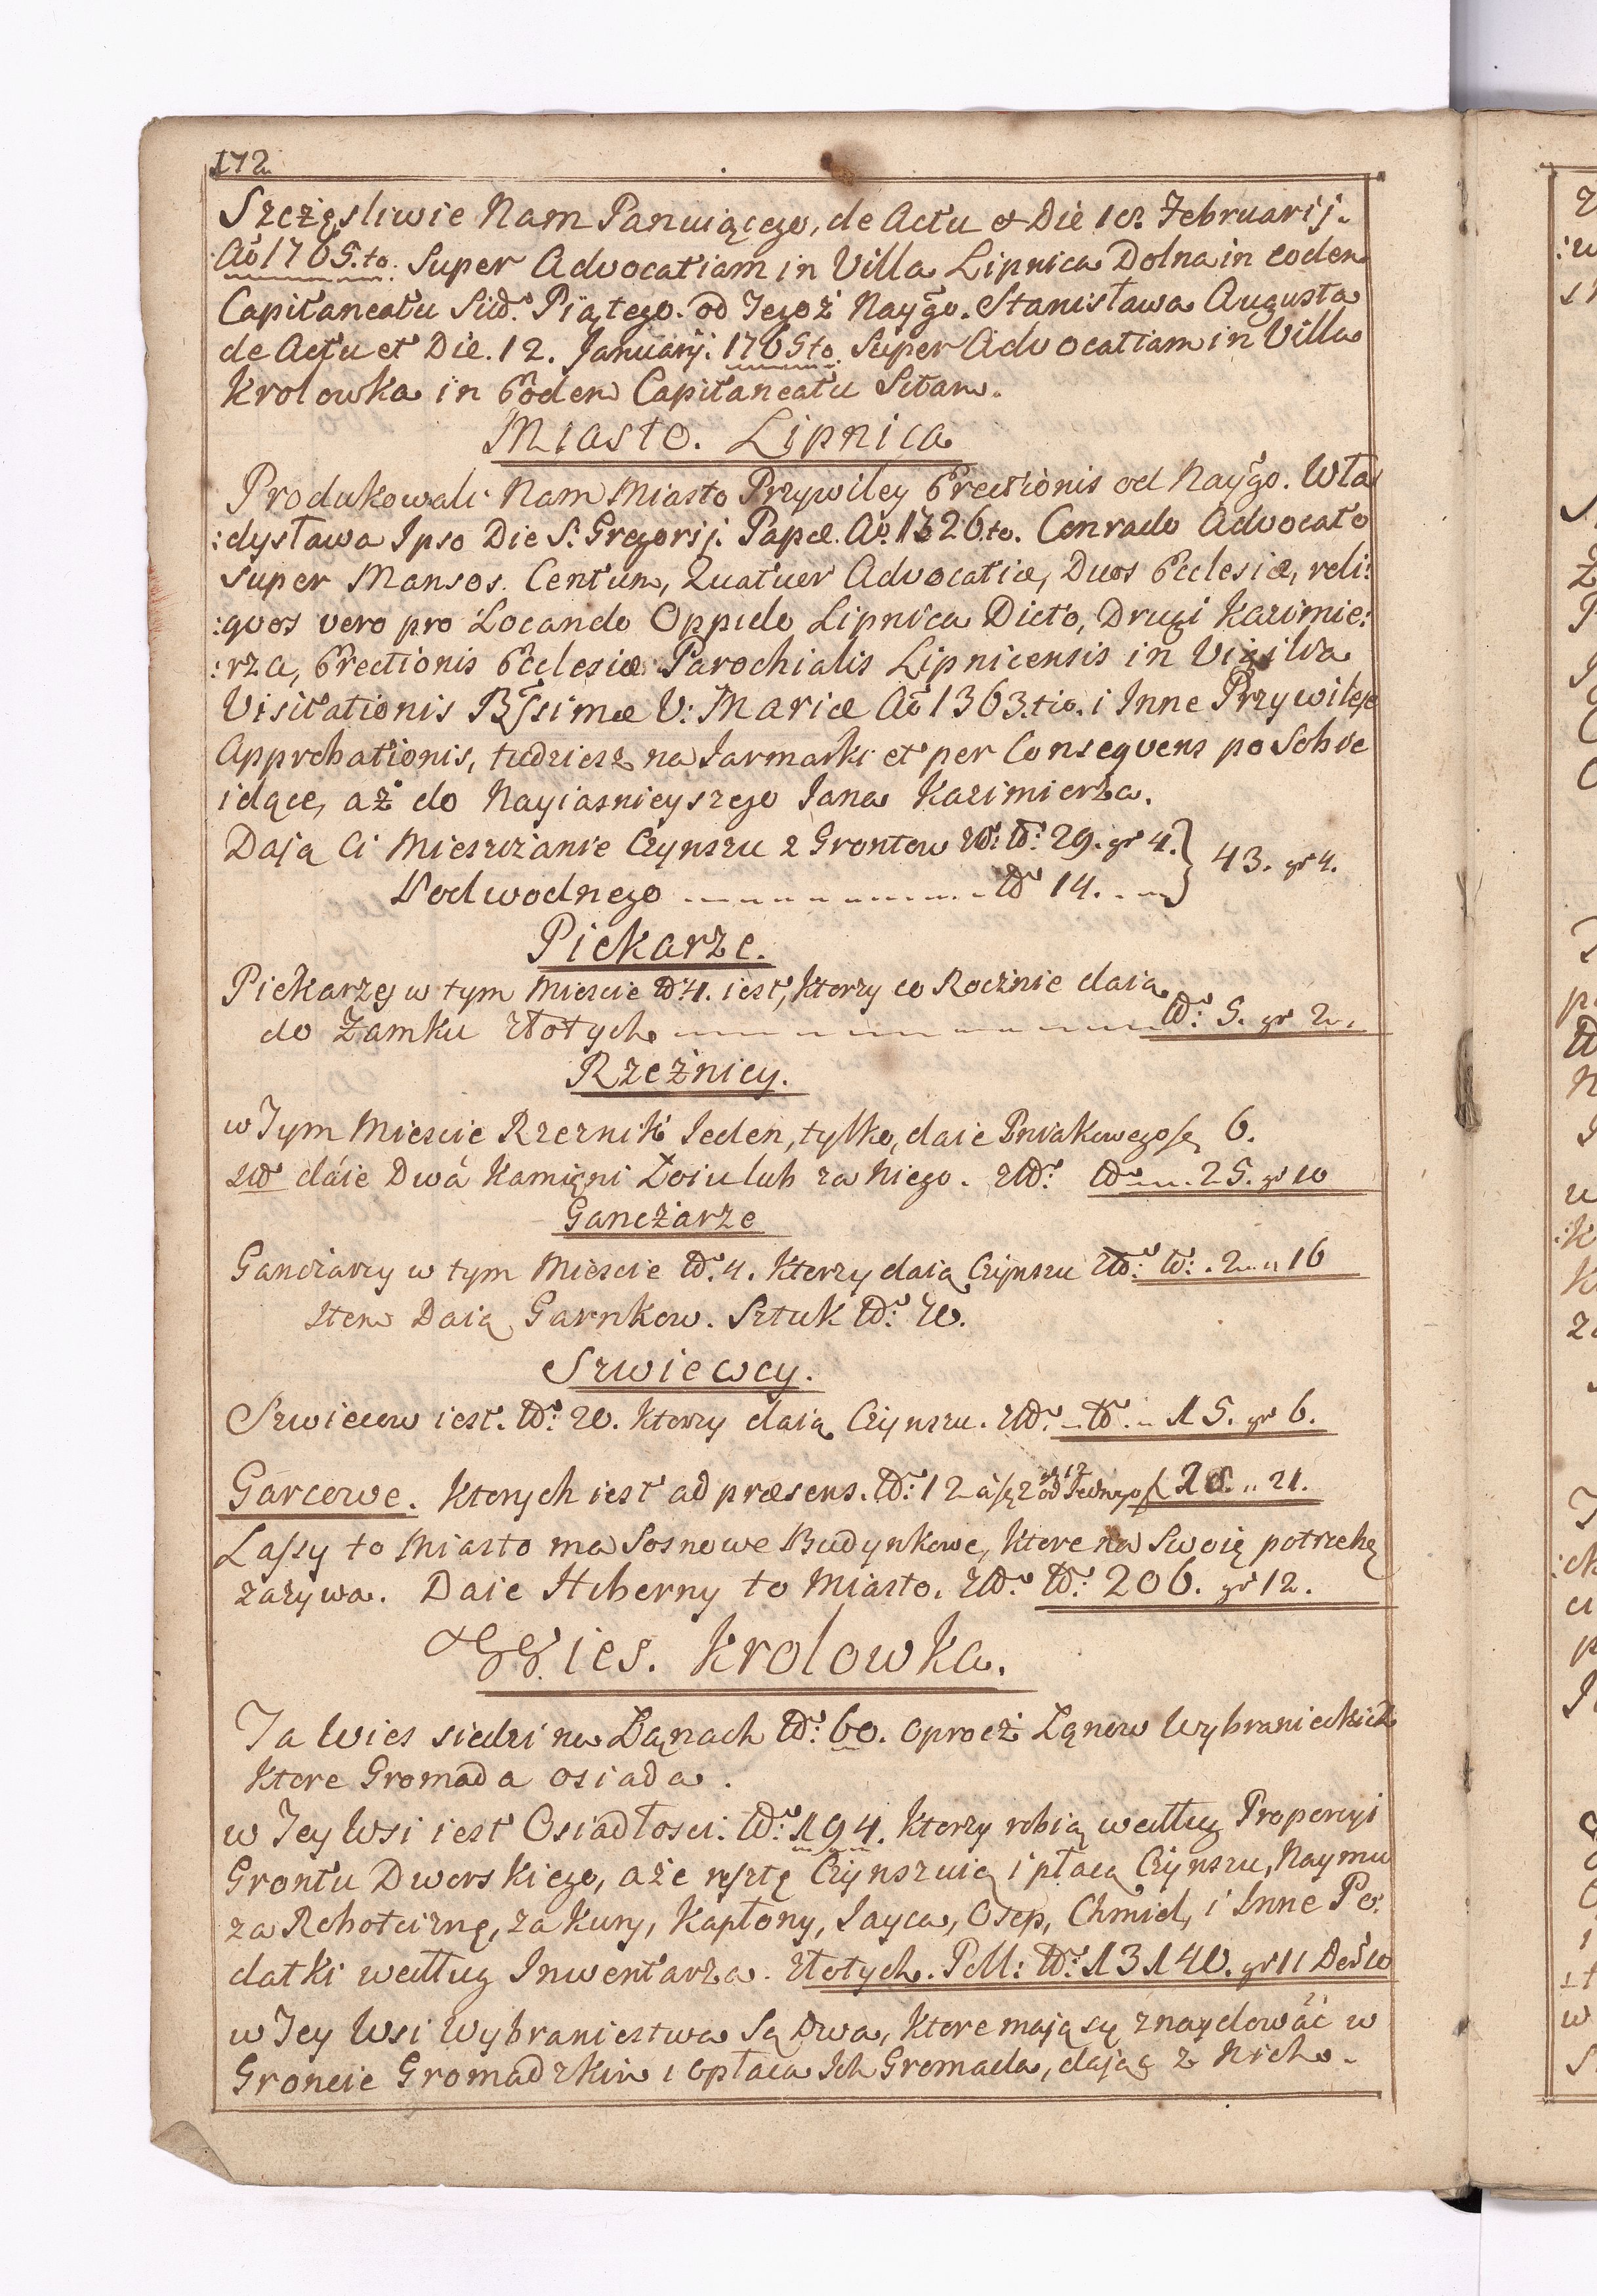 172
Szczęsliwie Nam Panuiącego, de Actu et Die 10. Februarij.
Aō 1765.to. Super Advocatiam in Villa Lipnica Dolna in eodem
Capitaneatu Piątego. od Jegoż Naygo. Stanisława Augusta
de Actu et Die. 12. Januarij. 1765to. Super Advocatiam in Villa
Krolowka in Eodem Capitaneatu Sitam.
Miasto. Lipnica
Produkowali Nam Miasto Przywiley Erectionis od Naygo. Wła
:dysława Ipso Die S. Gregorij. Papæ. Ao. 1326.to. Conrado Advocato
super Mansos. Centum, Quatuor Advocatiæ, Duos Ecclesiæ, reli:
:quos vero pro Locando Oppido Lipnica Dicto, Drugi Kazimie:
:rza, Erectionis Ecclesiæ Parochialis Lipnicensis in Vigilia
Visitationis Bssimæ V: Mariæ Aō 1363.tio. i Inne Przywileje
Approbationis, tudziesz na Jarmarki et per Consequens po Sobie
idące, aż do Nayiasnieyszego Jana Kazimierza.
Dają Ci Mieszczanie Czynszu z Grontow Zło: No: 29. gr 4.} 43. gr 4.
Podwodnego No 14.
Piekarze.
Piekarzy w tym Miescie No 4. iest, ktorzy co Rocznie daią
do Zamku złotych No: 5. gr 2.
Rzeźnicy.
w Tym Miescie Rzeznik Jeden, tylko, daie Pniakowego 6.
daie Dwa Kamięni Łoiu lub za Niego. No 25. gr 10
Ganczarze
Ganczarzy w tym Miescie No. 4. Ktorzy daią Czynszu No: 2 16
Item Daią Garnkow. Sztuk No: 20.
Szwiewcy.
Szwiecow iest. No: 20. Ktorzy daią Czynszu. No 15. gr 6.
Garcowe. Ktorych iest ad præsens. No: 12 od Jednego 20. 21.
Lassy to Miasto ma Sosnowe Budynkowe, Ktore na Swoię potrzebę
zażywa. Daie Hiberny to Miasto. No: 206. gr 12.
Wies. Krolowka.
Ta Wies siedzi na Łanach No: 60. oprocz Łanow Wybranieckich
Ktore Gromada osiada.
w Tey Wsi iest Osiadłosci: No: 194. Ktorzy robią według Proporcyi
Grontu Dworskiego, a że resztę Czynszuią i płacą Czynszu, Naymu
za Robotciznę, za Kury, Kapłony, Jayca, Osep, Chmiel, i Inne Po:
datki według Inwentarza. złotych. Poll: No: 13140. gr 11 Den: 10
w Tey Wsi Wybraniestwa Są Dwa, Ktore mają się znaydować w
Groncie Gromadzkim i opłaca Ich Gromada, dając z Nich.